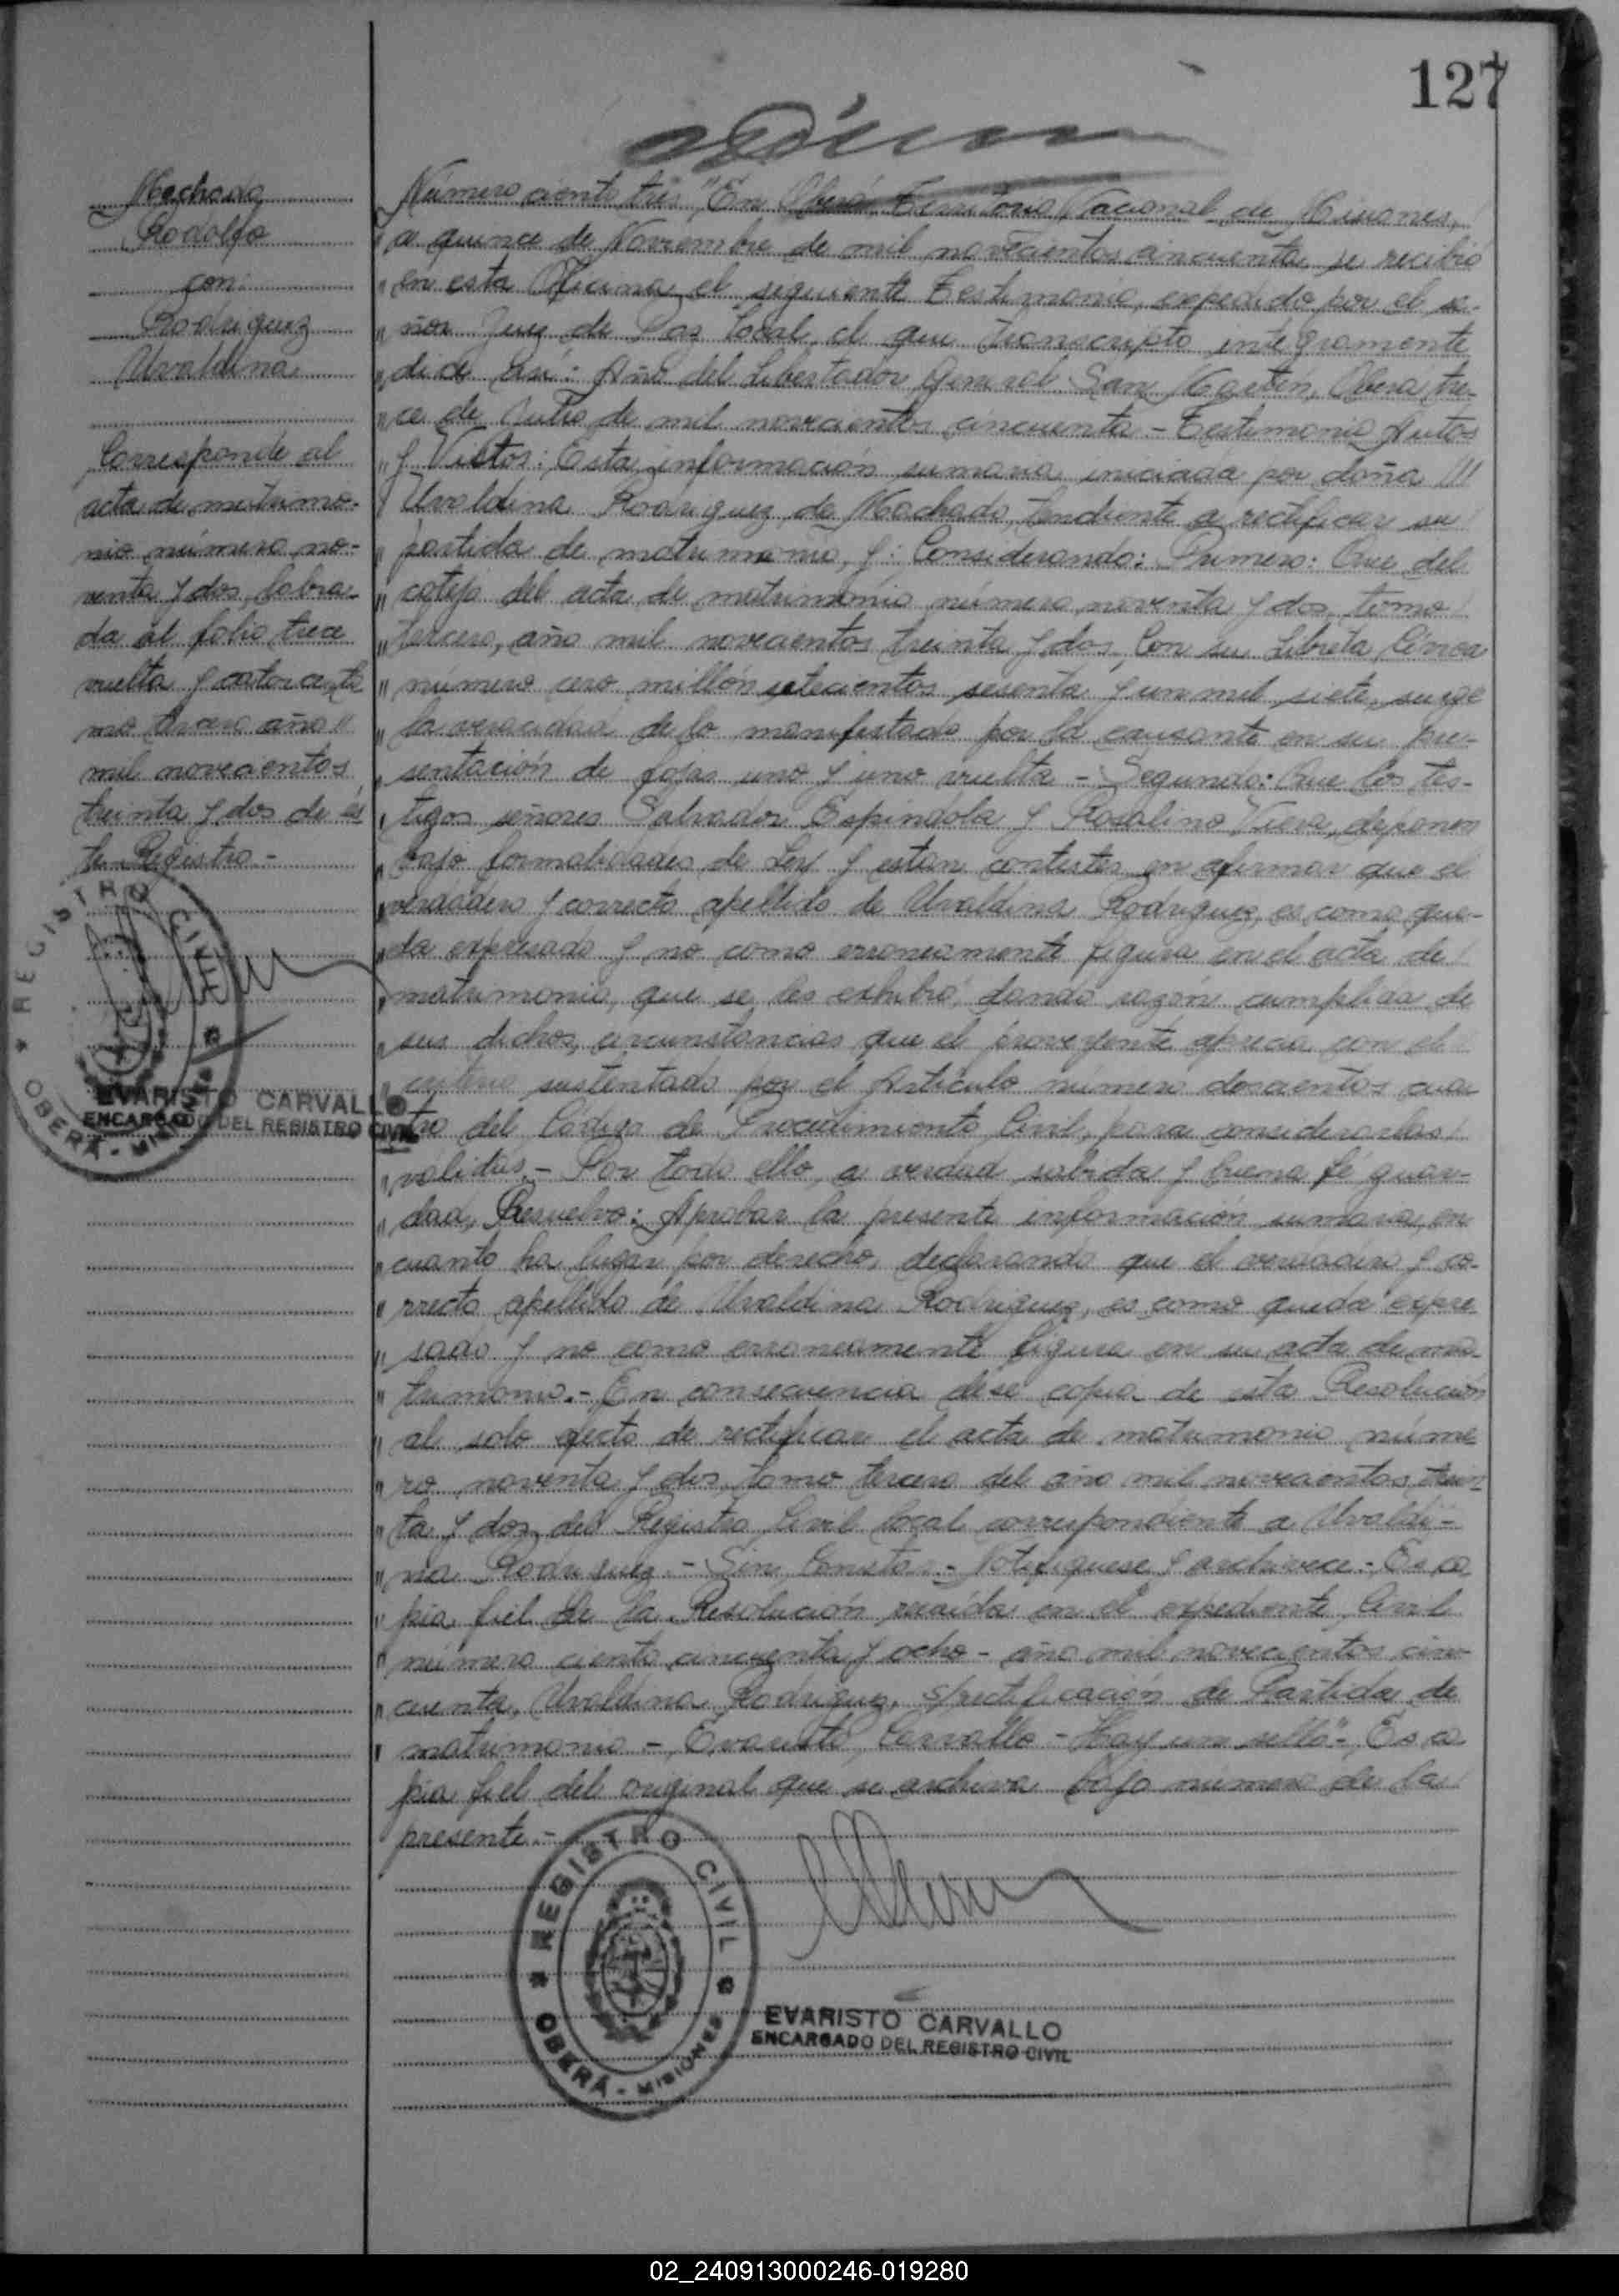 127
Machado
Rodolfo
con
Rodriguez
Uvaldina
Corresponde al
acta de matrimo-
nio número no-
venta y dos, labra-
da al folio trece
vuelta y catorce, to
mo tercero año //
mil novecientos
treinta y dos de és
te Registro -
REGISTRO CIVIL
OBERÁ - MISIONES
EVARISTO CARVALLO
ENCARGADO DEL REGISTRO CIVIL
Número ciento tres "En Oberá, Territorio Nacional de Misiones,
" a quince de Noviembre de mil novecientos cincuenta, se recibió
" en esta Oficina el siguiente Testimonio, expedido por el se-
" ñor Juez de Paz local, el que transcripto integramente
" dice así: Año del Libertador General San Martín, Oberá, tre-
" ce de Julio de mil novecientos cincuenta - Testimonio Autos
" y Vistos: Esta información sumaria iniciada por doña ///
" Uvaldina Rodriguez de Machado, tendiente a rectificar su
" partida de matrimonio, y: Considerando: Primero: Que del
" cotejo del acta de matrimonio número noventa y dos, tomo
" tercero, año mil novecientos treinta y dos, con su Libreta Cívica
" número cero millón setecientos sesenta y un mil siete, surge
" la veracidad de lo manifestado por la causante en su pre-
" sentación de fojas uno y uno vuelta - Segundo: Que los tes-
" tigos señores Salvador Espindola y Rosalino Viera, deponen
" bajo formalidades de Ley y estan contestes en afirmar que el
" verdadero y correcto apellido de Uvaldina Rodriguez, es como que-
" da expresado y no como erroneamente figura en el acta de
" matrimonio, que se les exhibió, dando razón cumplida de
" sus dichos, circunstancias que el proveyente aprecia con el
" criterio sustentado por el Artículo número doscientos cua
" tro del Código de Procedimiento Civil, para considerarlas
" validas. - Por todo ello, a verdad sabida y buena fé guar-
" dad, Resuelvo: Aprobar la presente información sumaria, en
" cuanto ha lugar por derecho, declarando que el verdadero y co-
" rrecto apellido de Uvaldina Rodriguez, es como queda expre
" sado y no como erroneamente figura en su acta de ma-
" trimonio. - En consecuencia dese copia de esta Resolución
" al solo efecto de rectificar el acta de matrimonio núme
" ro noventa y dos, tomo tercero del año mil novecientos trein
" ta y dos, del Registro Civil local correspondiente a Uvaldi-
" na Rodriguez. - Sin Costas. - Notifiquese y archivece. - Es co
" pia fiel de la Resolución recaída en el expediente Civil
" número ciento cincuenta y ocho - año mil novecientos cin-
" cuenta, Uvaldina Rodriguez, s/rectificación de Partida de
" matrimonio - Evaristo Carvallo - Hay un sello" - Es co
pia fiel del original que se archiva bajo número de la
presente. -
REGISTRO CIVIL
OBERÁ - MISIONES
EVARISTO CARVALLO
ENCARGADO DEL REGISTRO CIVIL
02_240913000246-019280